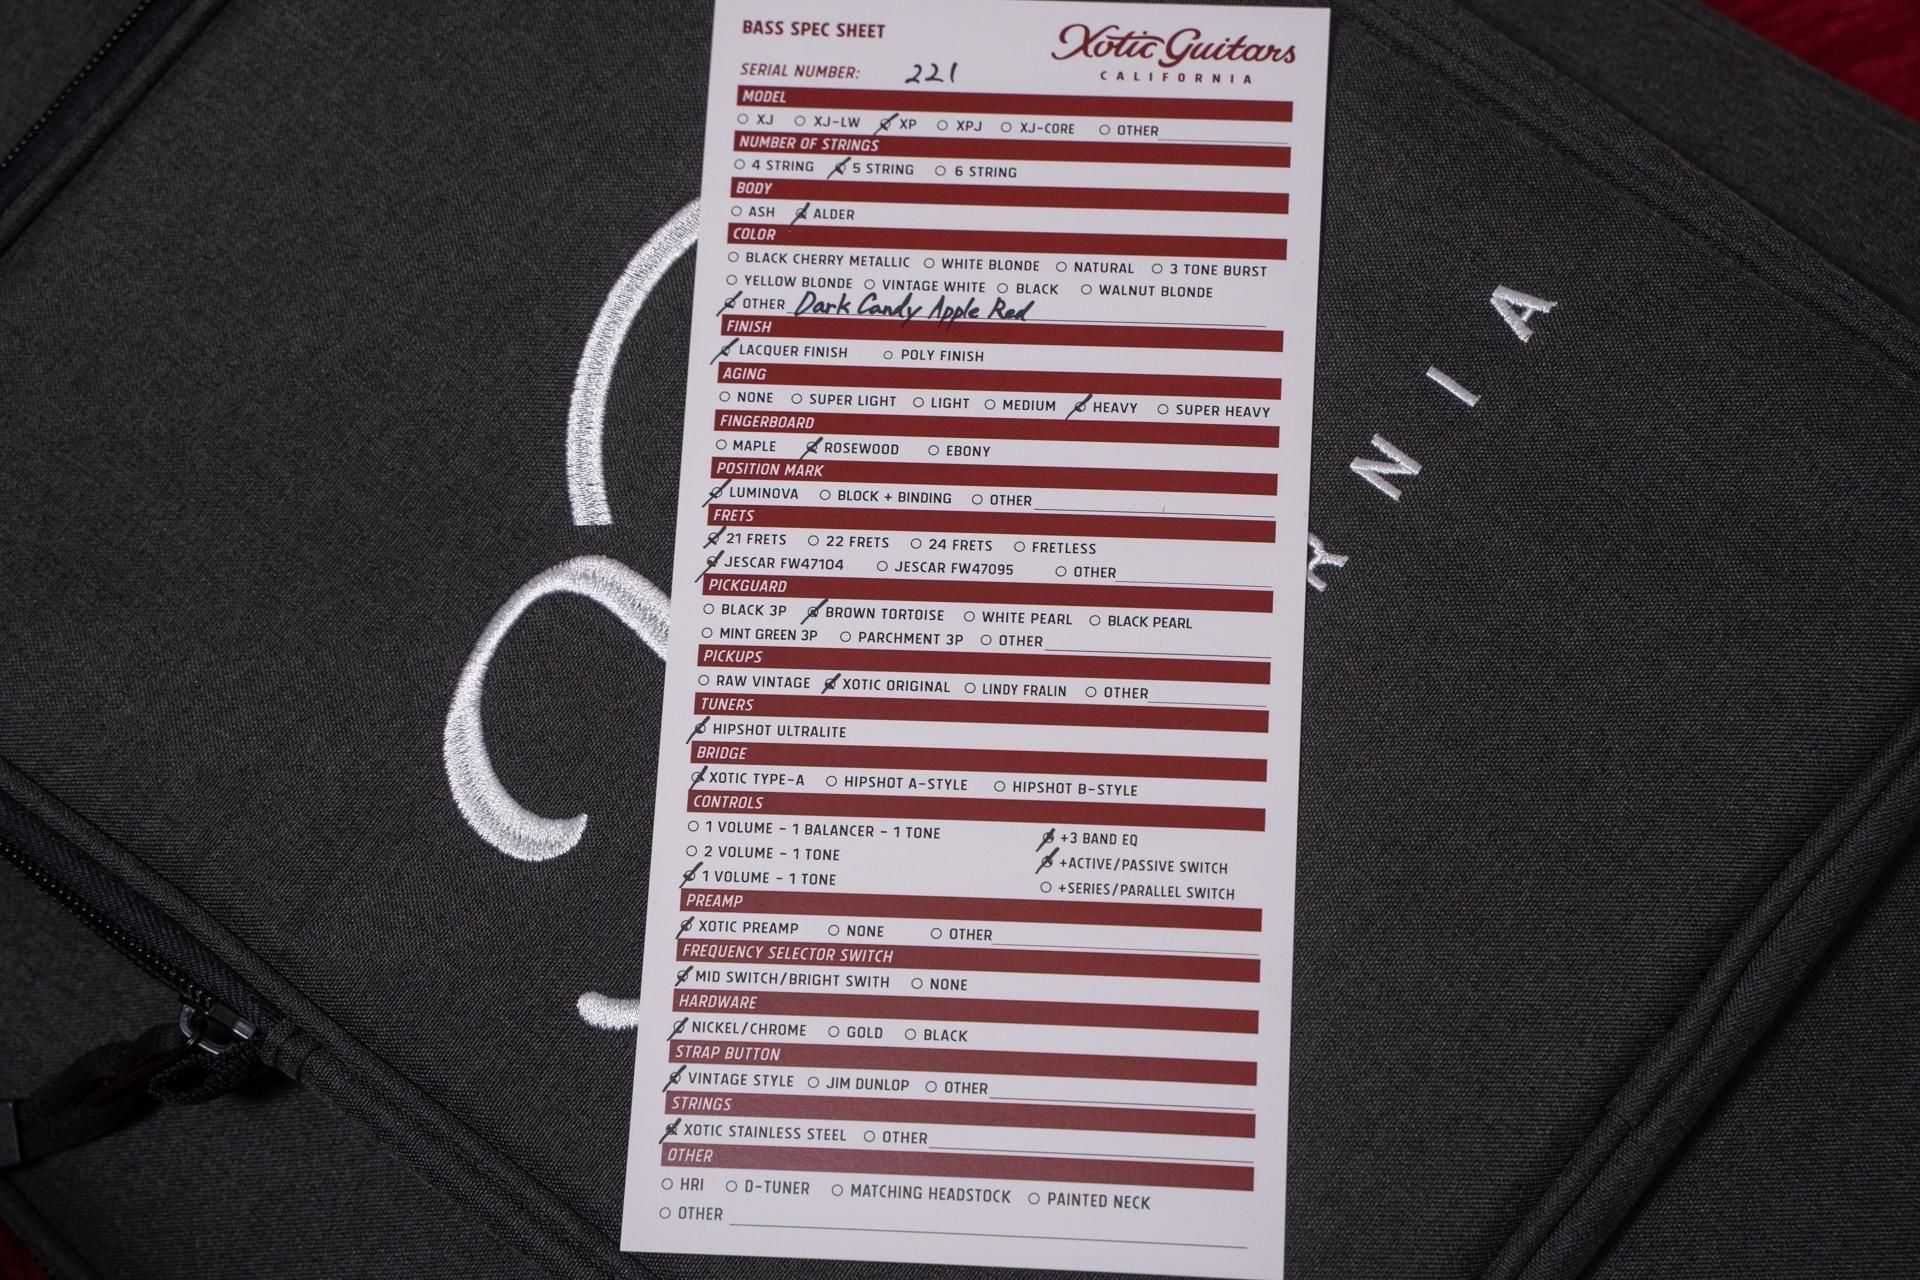 BASS SPEC SHEET
Xotic Guitars
CALIFORNIA
SERIAL NUMBER: 221
MODEL
XJ XJ-LW XP XPJ XJ-CORE OTHER
NUMBER OF STRINGS
4 STRING 5 STRING 6 STRING
BODY
ASH ALDER
COLOR
BLACK CHERRY METALLIC WHITE BLONDE NATURAL 3 TONE BURST
YELLOW BLONDE VINTAGE WHITE BLACK WALNUT BLONDE
OTHER Dark Candy Apple Red
FINISH
LACQUER FINISH POLY FINISH
AGING
NONE SUPER LIGHT LIGHT MEDIUM HEAVY SUPER HEAVY
FINGERBOARD
MAPLE ROSEWOOD EBONY
POSITION MARK
LUMINOVA BLOCK + BINDING OTHER
FRETS
21 FRETS 22 FRETS 24 FRETS FRETLESS
JESCAR FW47104 JESCAR FW47095 OTHER
PICKGUARD
BLACK 3P BROWN TORTOISE WHITE PEARL BLACK PEARL
MINT GREEN 3P PARCHMENT 3P OTHER
PICKUPS
RAW VINTAGE XOTIC ORIGINAL LINDY FRALIN OTHER
TUNERS
HIPSHOT ULTRALITE
BRIDGE
XOTIC TYPE-A HIPSHOT A-STYLE HIPSHOT B-STYLE
CONTROLS
1 VOLUME - 1 BALANCER - 1 TONE +3 BAND EQ
2 VOLUME - 1 TONE +ACTIVE/PASSIVE SWITCH
1 VOLUME - 1 TONE +SERIES/PARALLEL SWITCH
PREAMP
XOTIC PREAMP NONE OTHER
FREQUENCY SELECTOR SWITCH
MID SWITCH/BRIGHT SWITH NONE
HARDWARE
NICKEL/CHROME GOLD BLACK
STRAP BUTTON
VINTAGE STYLE JIM DUNLOP OTHER
STRINGS
XOTIC STAINLESS STEEL OTHER
OTHER
HRI D-TUNER MATCHING HEADSTOCK PAINTED NECK
OTHER
RNIA